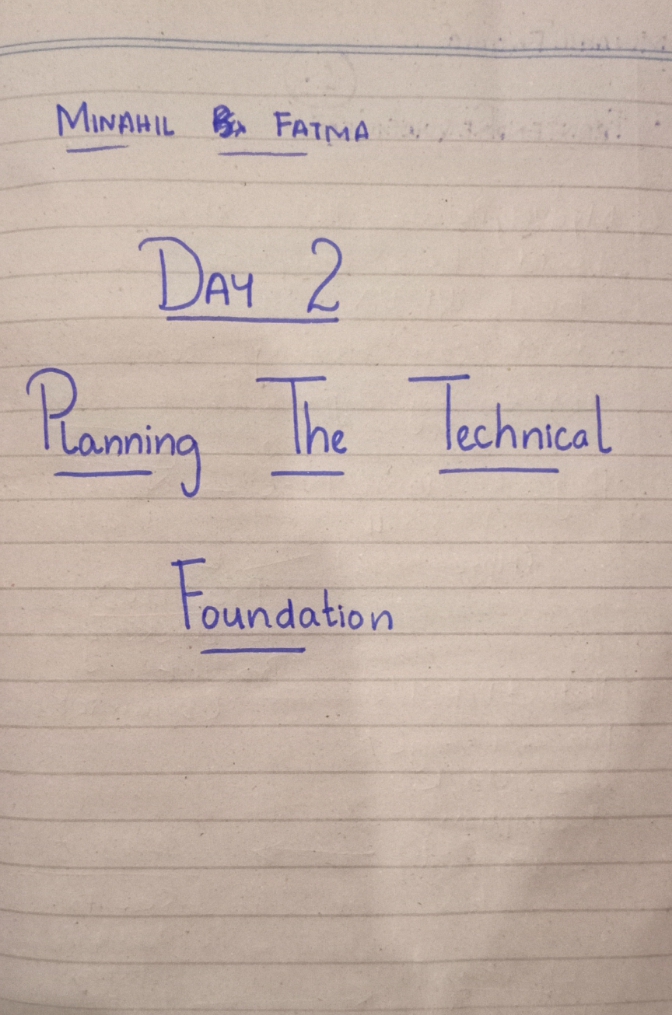 MINAHIL FATMA
DAY 2
Planning The Technical
Foundation